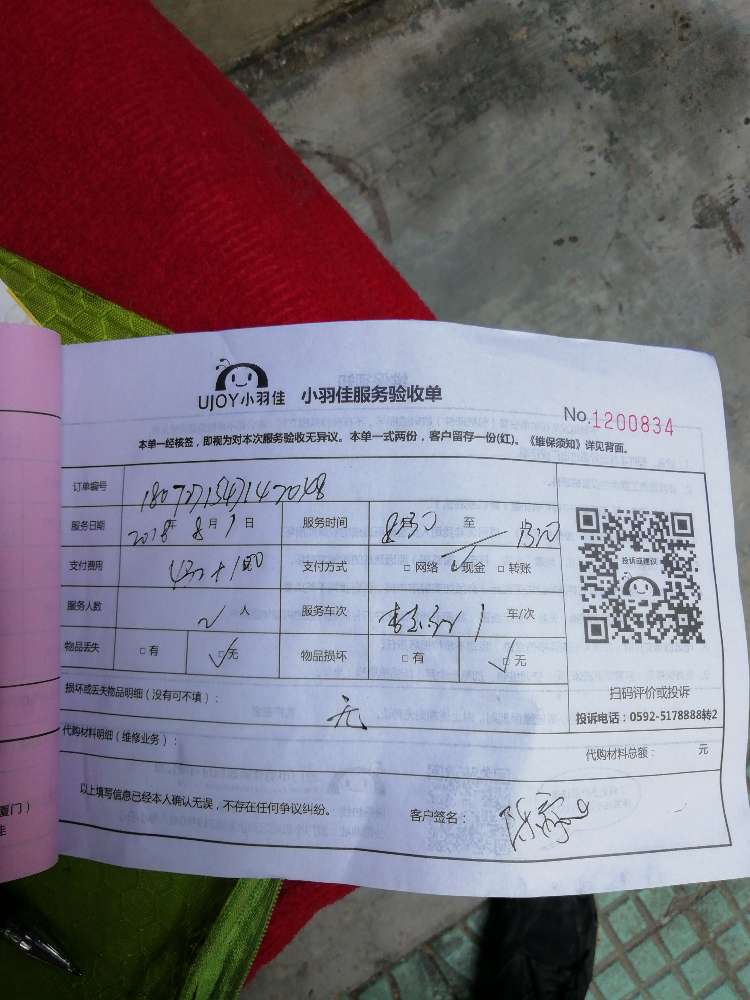 UJOY小羽佳 小羽佳服务验收单
No.1200834
本单一经核签，即视为对本次服务验收无异议。本单一式两份，客户留存一份(红)。《维保须知》详见背面。
订单编号
服务日期 2018年 8月 1日 服务时间 至
支付费用 支付方式 □网络 ☑现金 □转账
服务人数 2人 服务车次 1 车/次
物品丢失 □有 ☑无 物品损坏 □有 ☑无
损坏或丢失物品明细（没有可不填）： 无
代购材料明细（维修业务）： 代购材料总额： 元
以上填写信息已经本人确认无误，不存在任何争议纠纷。 客户签名：
投诉或建议
扫码评价或投诉
投诉电话：0592-5178888转2
厦门）